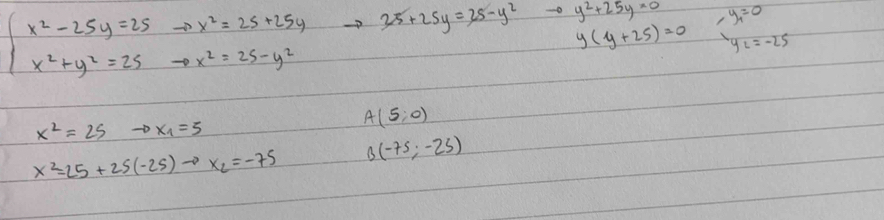 x² - 25y = 25 → x² = 25 + 25y → 25 + 25y = 25 - y² → y² + 25y = 0
y(y + 25) = 0 y₁ = 0
y₂ = -25
x² + y² = 25 → x² = 25 - y²
x² = 25 → x₁ = 5 A(5; 0)
x² = 25 + 25(-25) → x₂ = -75 B(-75; -25)